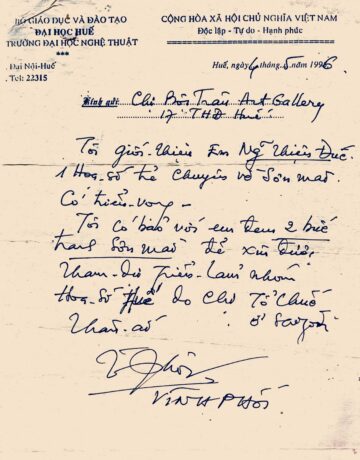 BỘ GIÁO DỤC VÀ ĐÀO TẠO
ĐẠI HỌC HUẾ
TRƯỜNG ĐẠI HỌC NGHỆ THUẬT
***
Đại Nội-Huế
Tel: 22315
CỘNG HÒA XÃ HỘI CHỦ NGHĨA VIỆT NAM
Độc lập - Tự do - Hạnh phúc
Huế, ngày 4 tháng 5 năm 1996
Kính gửi: Chị Bội Trân Art Gallery
17 THĐ Huế.
Tôi giới thiệu Em Ngô Thiện Đức
1 Họa sĩ trẻ chuyên vẽ Sơn mài
Có triển vọng
Tôi có bảo với em đem 2 bức
tranh Sơn mài để xin được
tham dự triển lãm nhóm
Họa sĩ Huế do Chị Tổ Chức
ở Saigon
Thân ái
VĨNH PHỐI